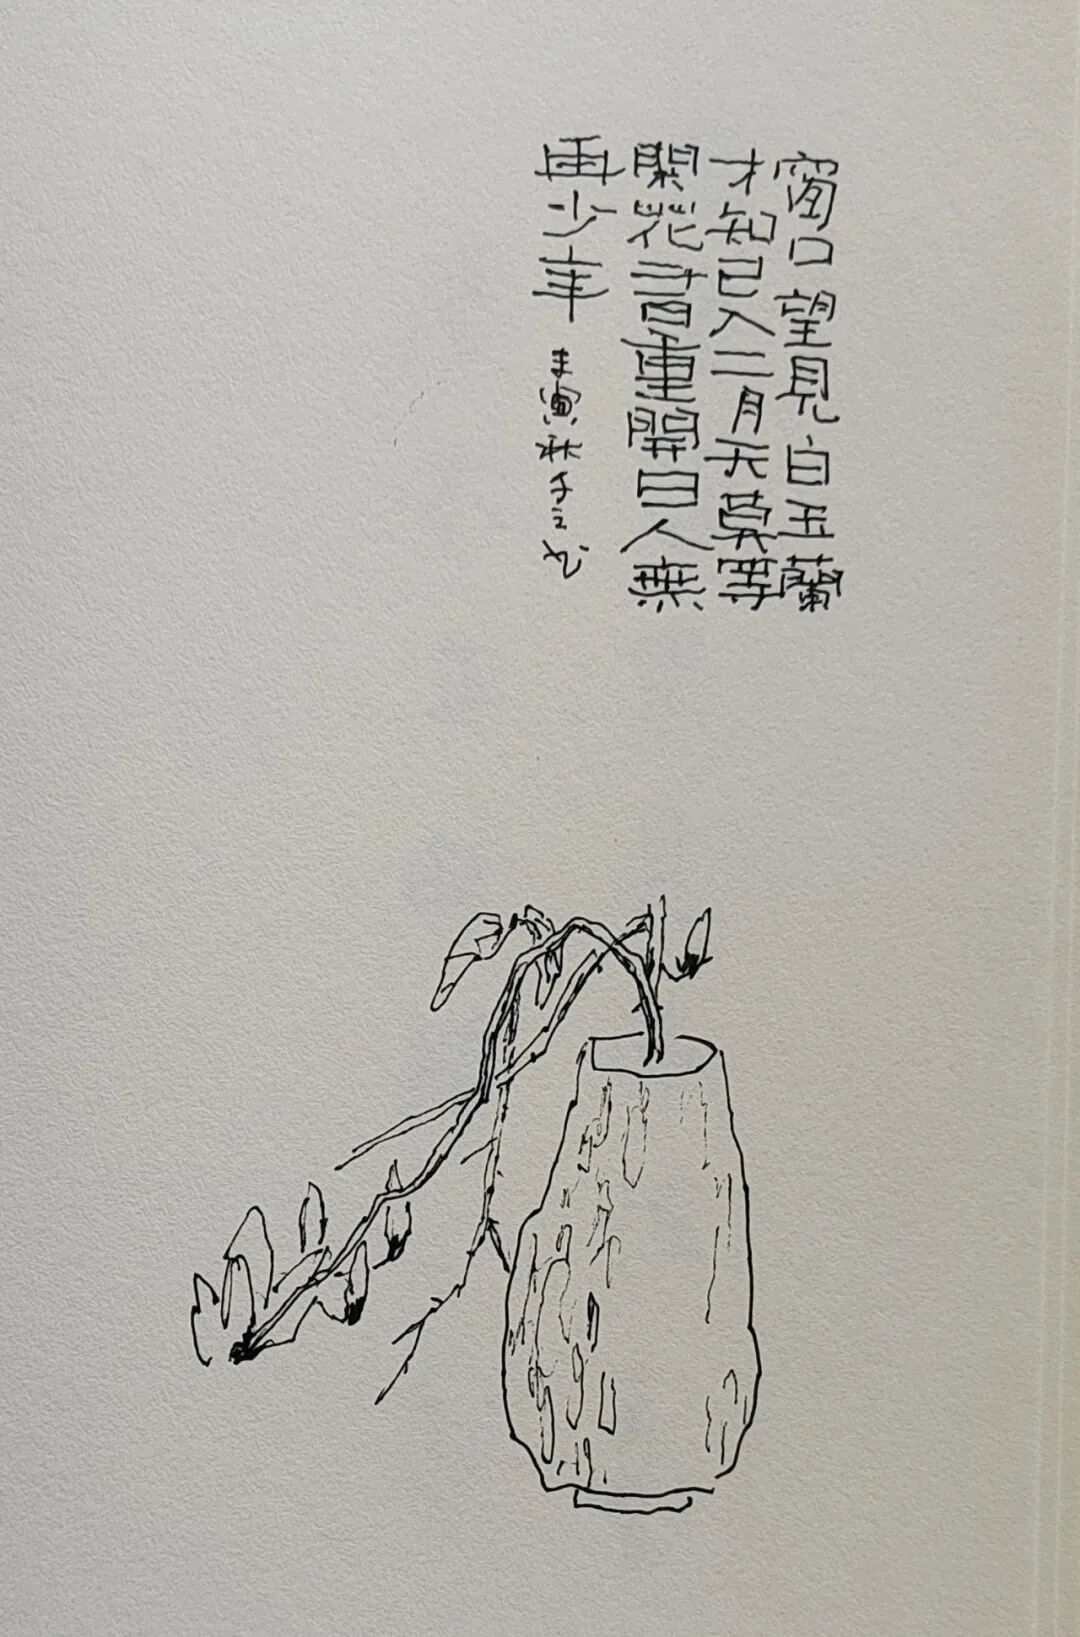 窗口望見白玉蘭
才知已入二月天莫等
閑花有重開日人無
再少年 壬寅秋